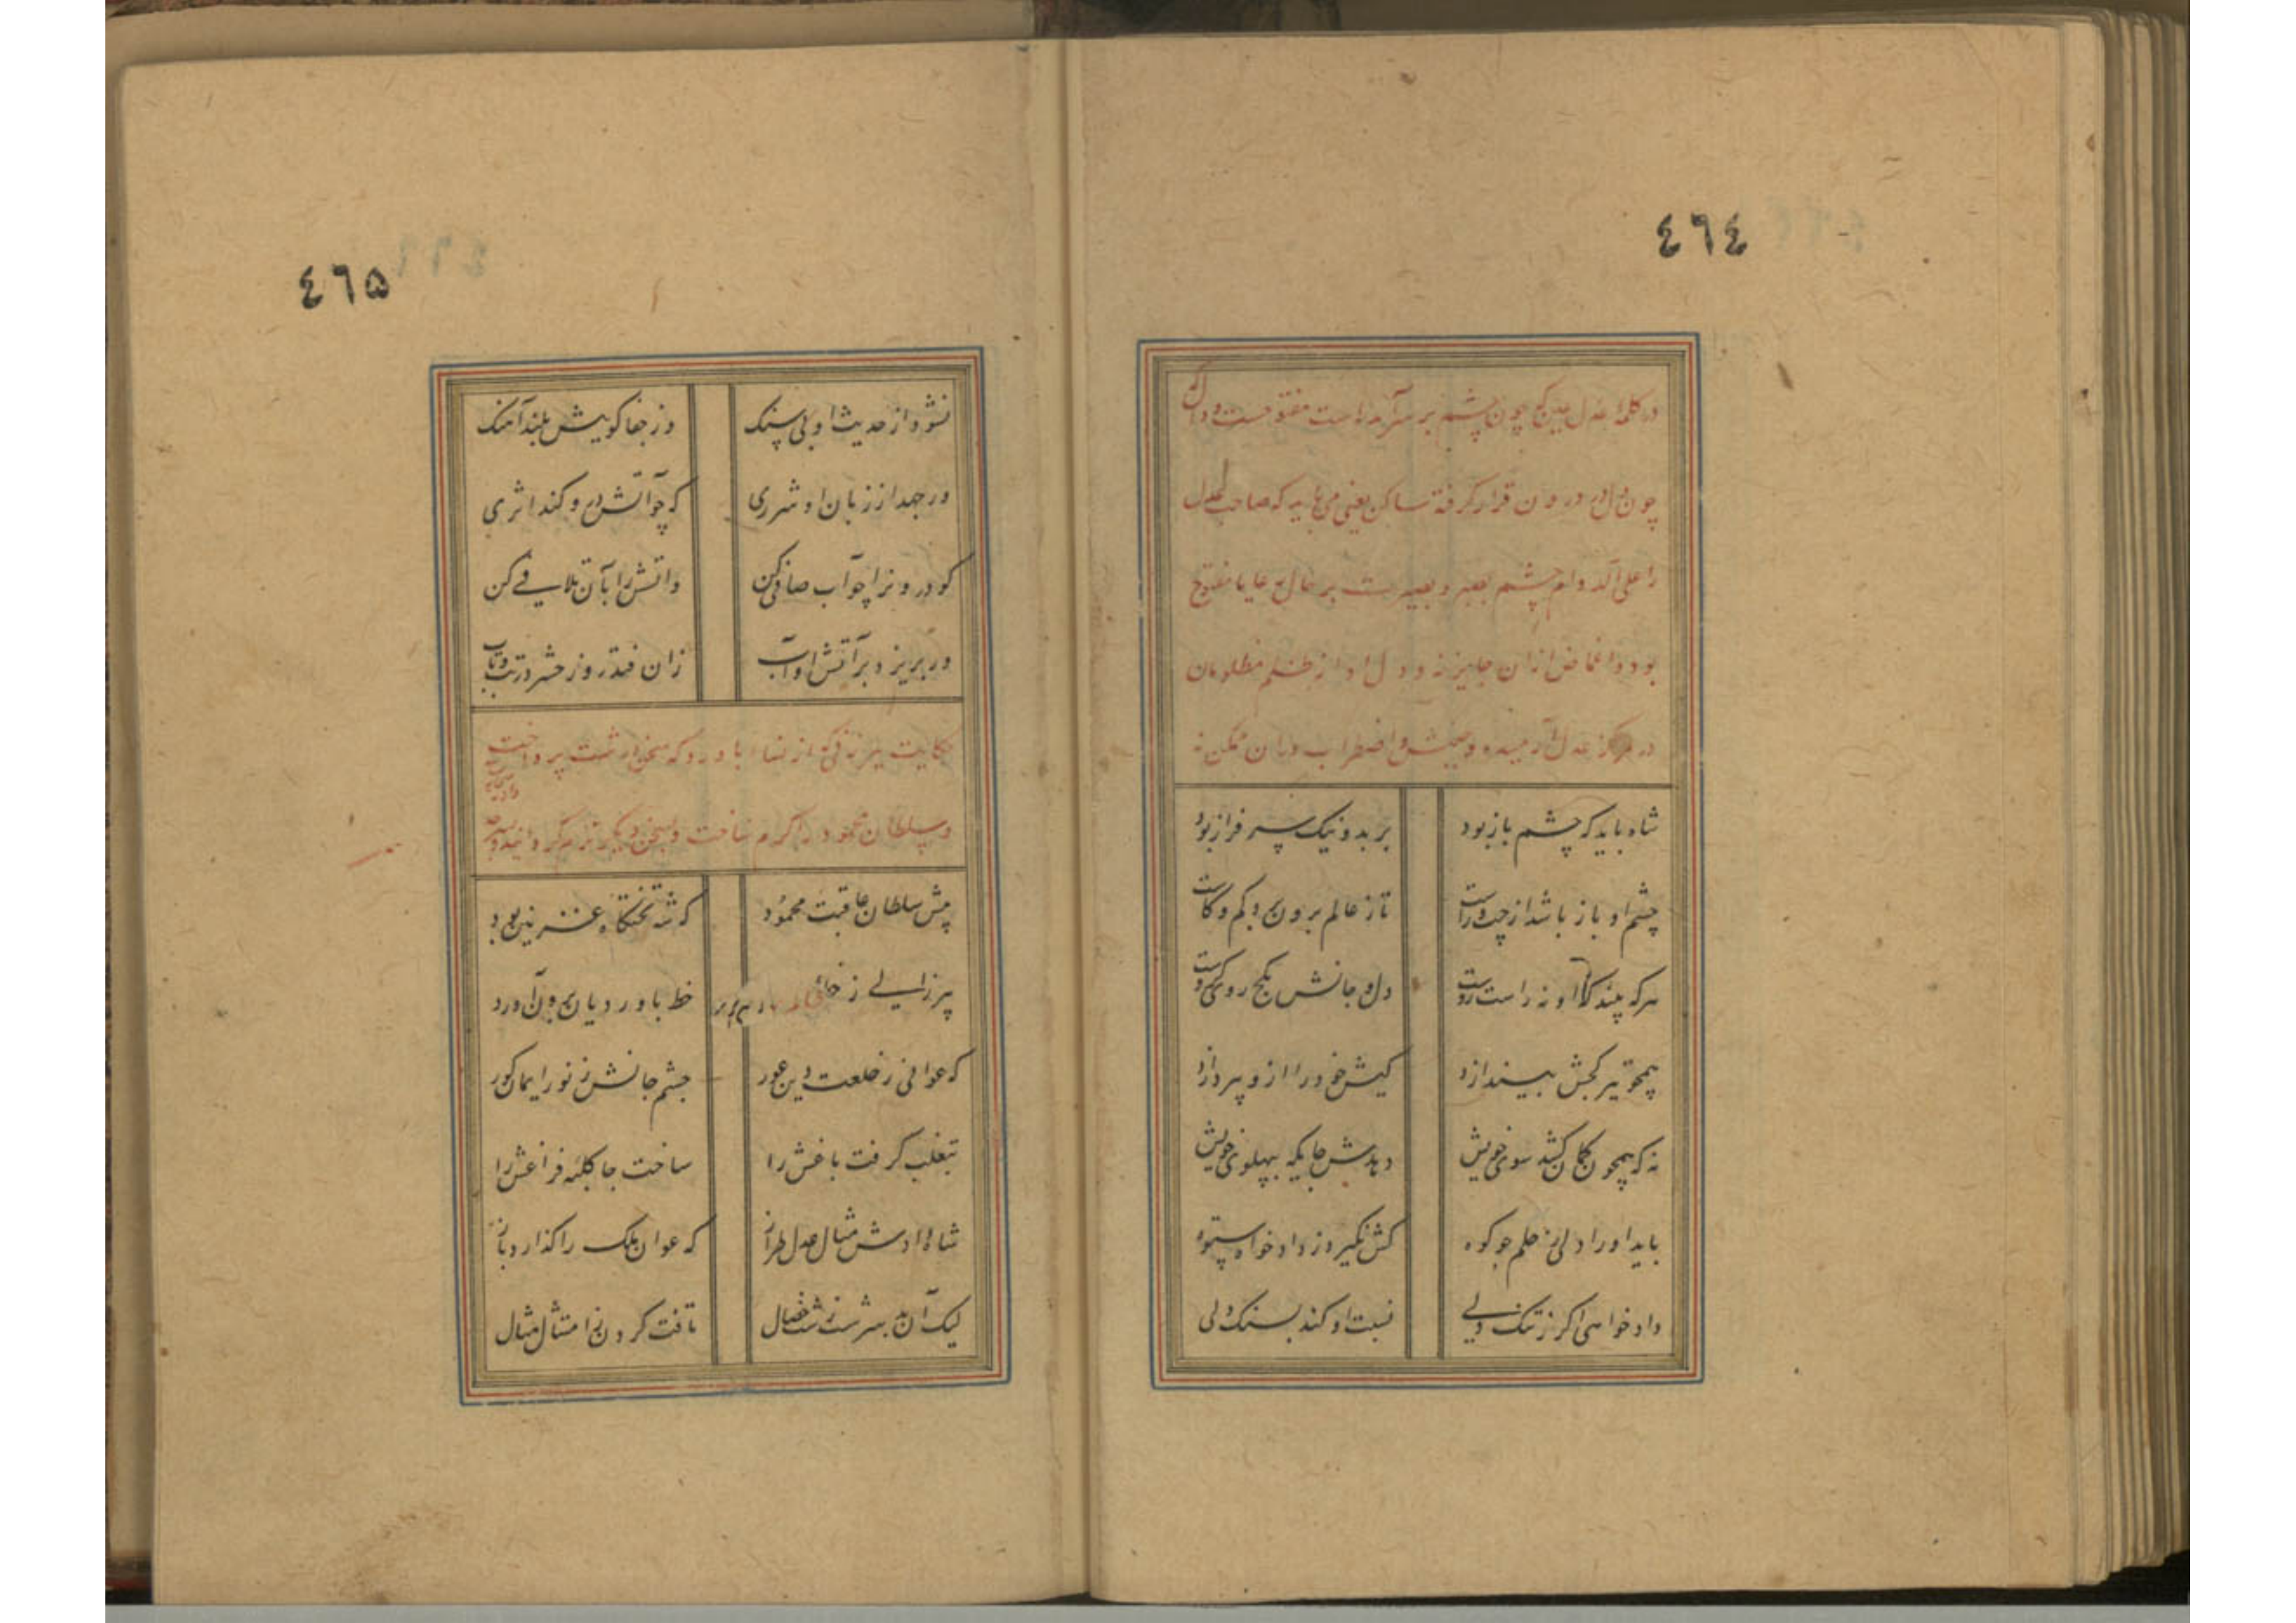 ٤٦٤
در کلمه عدل عین که چون چشم بر سر آمده است مفتوحست و دال که
چون دل در درون قرار گرفته ساکن یعنی می باید که صاحب عدل
را علی الدوام چشم بصر و بصیرت بر حال رعایا مفتوح
بود و اغماض ازان جایز نه و دل او از ظلم مظلومان
در مرکز عدل آرمیده و جنبش و اضطراب دران ممکن نه
شاه باید که چشم باز بود بر بد و نیک سرفراز بود
چشم او باز باشد از چپ و راست تا ز عالم برون برد کم و کاست
هر که بیند کج او نه راست روست دل و جانش بکج روی گروست
همچو تیر کجش بیندازد کیش خود را ازو بپردازد
نه که همچون کمان کشد سوی خویش دهدش جایگه بپهلوی خویش
باید او را دلی ز حلم چو کوه کش نگیرد ز دادخواه ستوه
دادخواهی اگر ز تنک دلی نسبت او کند بسنک دلی
٤٦۵
نشود از حدیث او بی سنک وز جفا گوییش بلند آهنک
ور جهد از زبان او شرری که چو آتش درو کند اثری
گو درونرا چو آب صافی کن واتش را بآن تلافی کن
ور بریزد بر آتش او آب زان فتد روز حشر در تب و تاب
حکایت پیرزنی که از نسا و باورد که سخن درشت پرداخت
و سلطان محمود را گرم ساخت و بسخن دیگر نرم گردانید و بسرحد
پیش سلطان عاقبت محمود که شه تختگاه غزنین بود
پیرزالی ز خط باوردیان برون آورد
که عوانی ز خلعت دین عور چشم جانش ز نور ایمان کور
بتغلب گرفت باغش را ساخت جا کلبه فراغش را
شاه دادش مثال عدل طراز که عوان ملک را گذارد باز
لیک آن بد سرشت زشت خصال تافت گردن ز امتثال مثال